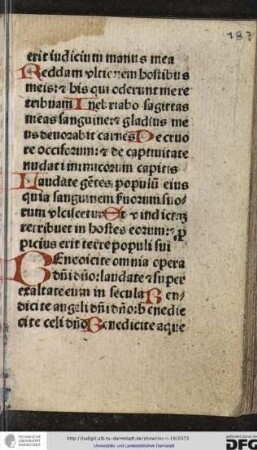 187
erit iudicium manus mea
Reddam vltionem hostibus
meis: & his qui oderunt me re
tribuam Inebriabo sagittas
meas sanguine: & gladius me
us deuorabit carnes De cruo
re occisorum: & de captiuitate
nudati inimicorum capitis
Laudate gētes populū eius
quia sanguinem suorum suo
rum vlciscetur Et vindictaʒ
retribuet in hostes eorum: & ꝓ
picius erit terre populi sui
BEnedicite omnia opera
dñi dño: laudate & super
exaltate eum in secula Ben
dicite angeli dñi dño: benedi
cite celi dño Benedicite aque
http://tudigit.ulb.tu-darmstadt.de/show/inc-iv-19/0373
Universitäts- und Landesbibliothek Darmstadt
DFG